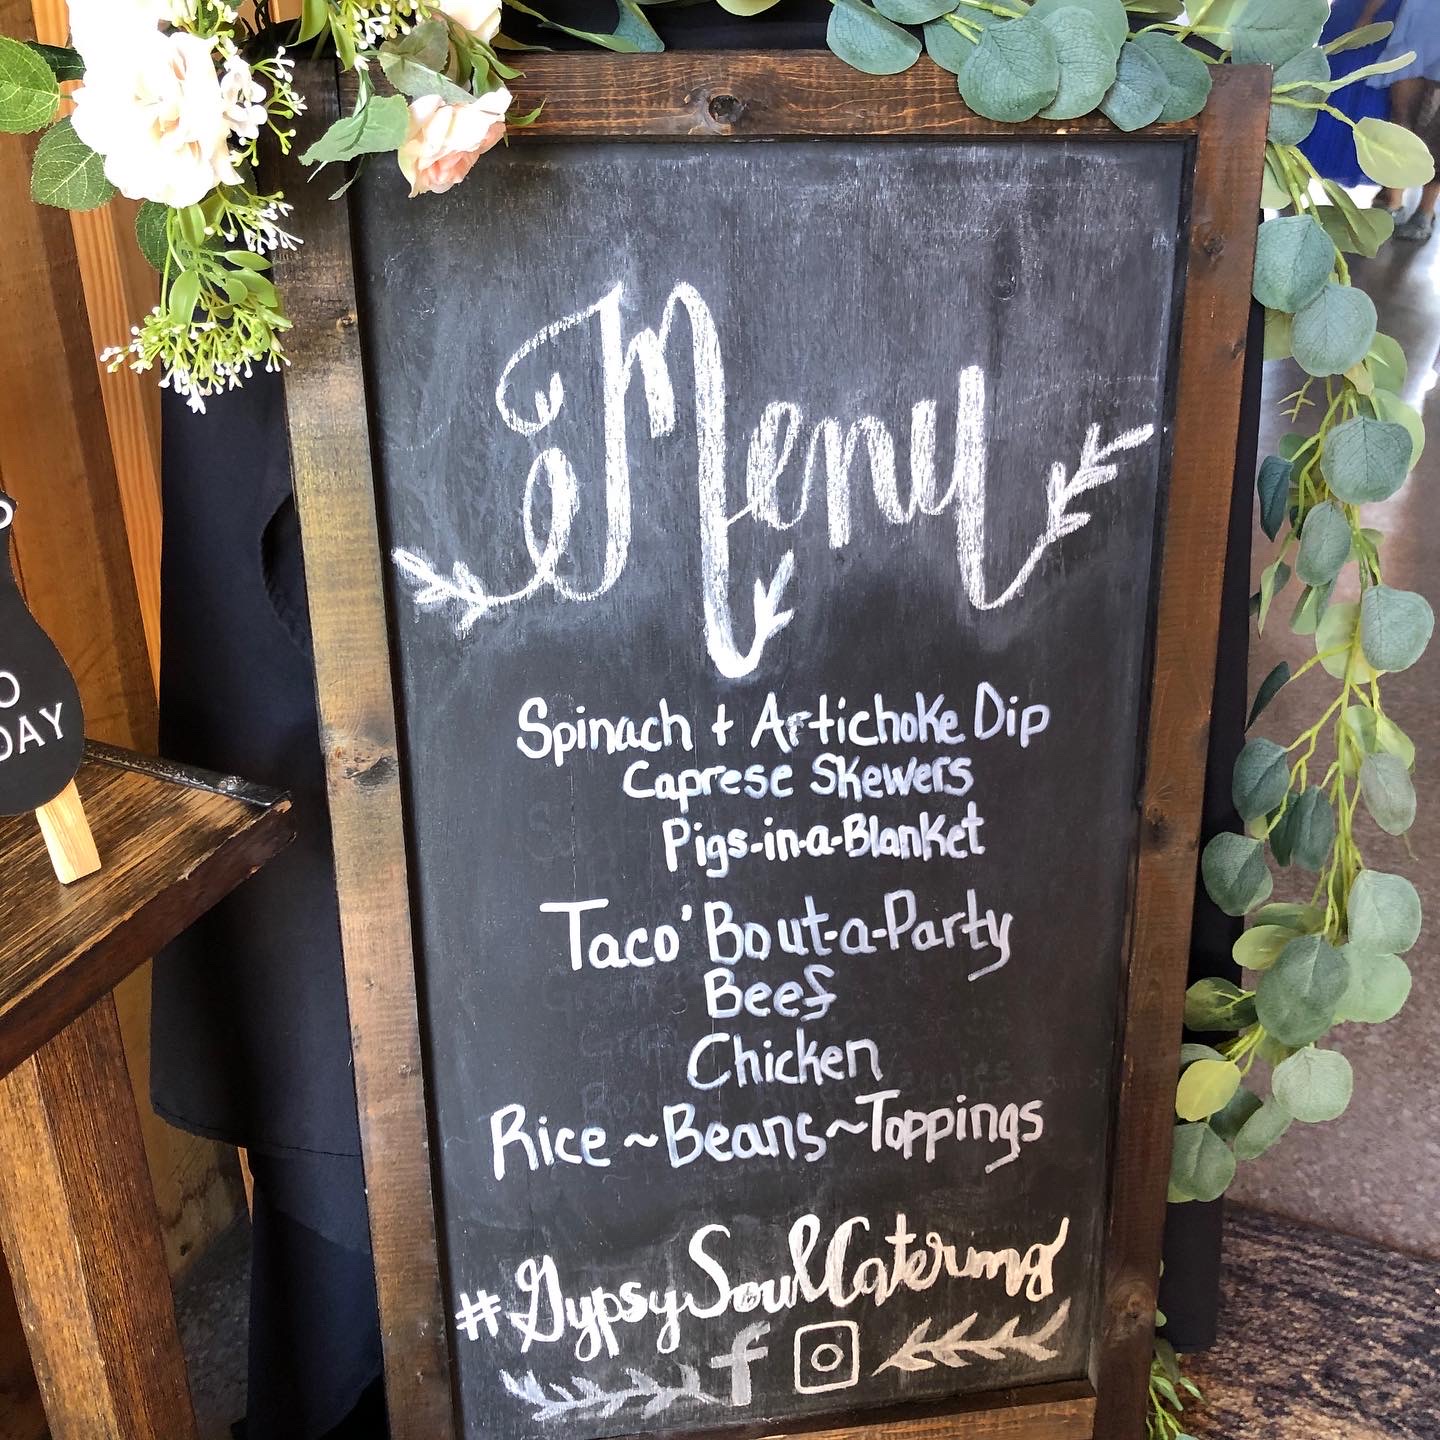 Menu
Spinach + Artichoke Dip
Caprese Skewers
Pigs-in-a-Blanket
Taco 'Bout-a-Party
Beef
Chicken
Rice ~ Beans ~ Toppings
#GypsySoulCatering
f
O
DAY